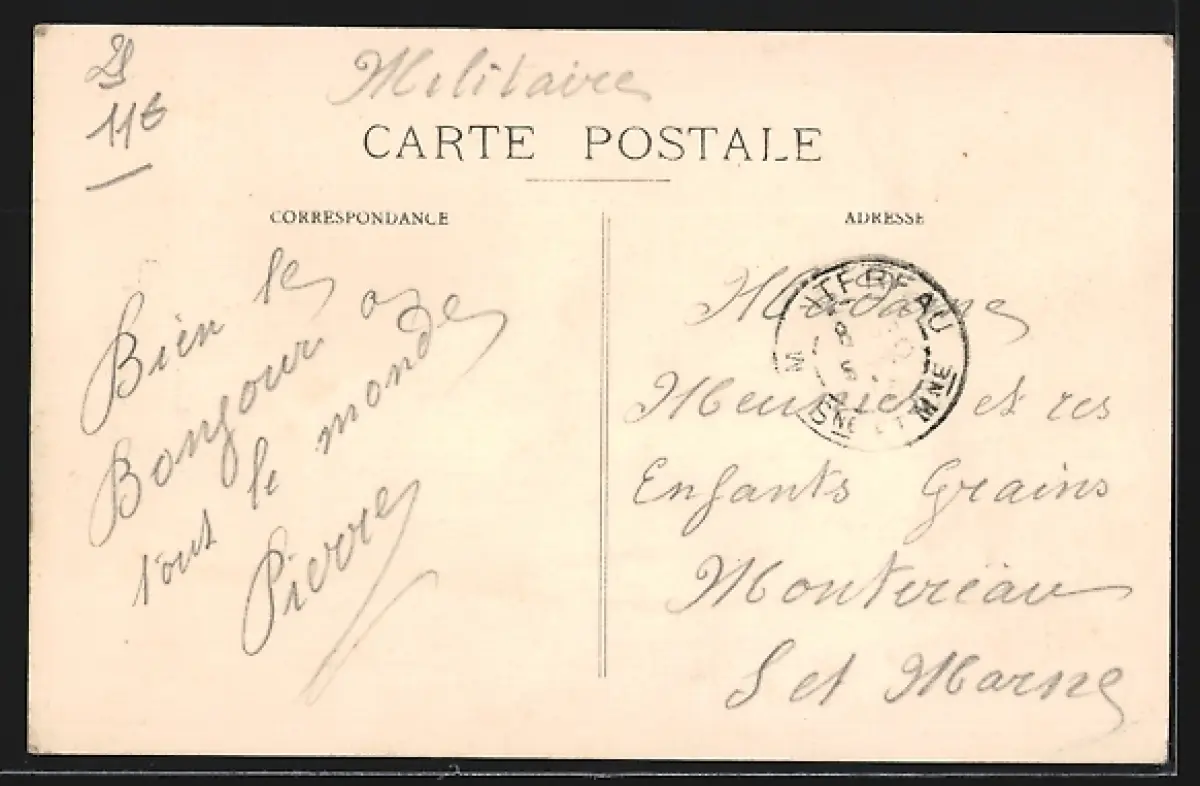 Militaire
116
CARTE POSTALE
CORRESPONDANCE
ADRESSE
Bien le
Bonjour a
tout le monde
Pierre
Madame
Meunier et ces
Enfants Grains
Montereau
S et Marne
NTEREAU
8
5
SNE ET MNE